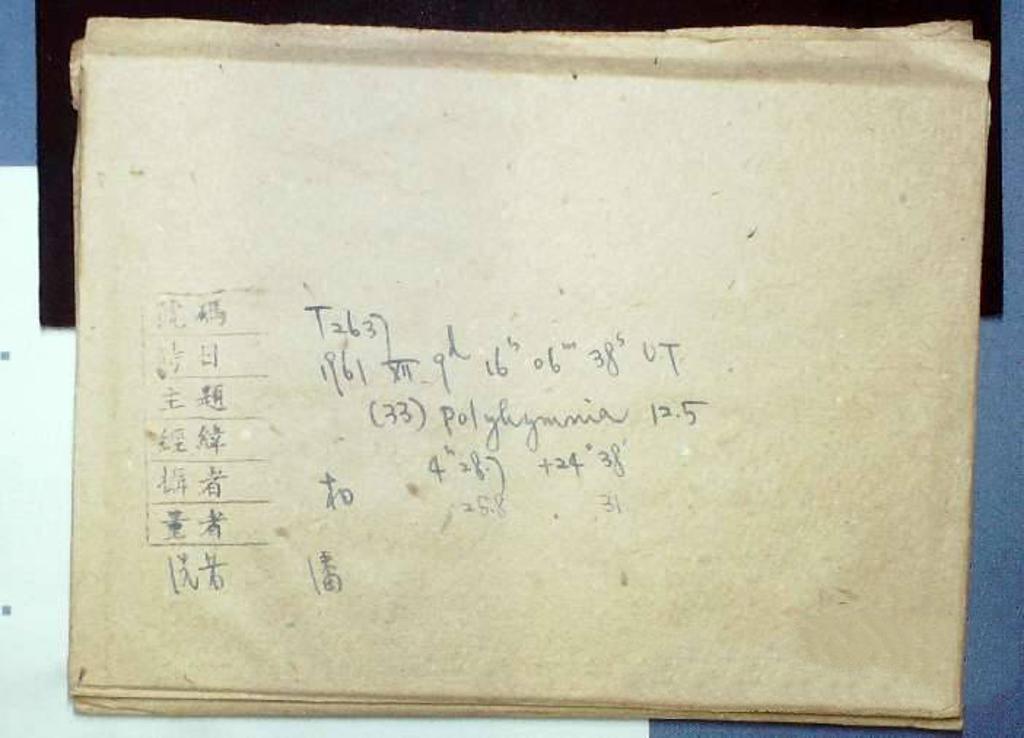 號碼 T2637
時日 1961 XII 9d 16h 06m 38s UT
主題 (33) Polyhymnia 12.5
經緯 4h 28.7 +24° 38'
25.8 31
攝者 柏
量者
洗者 潘